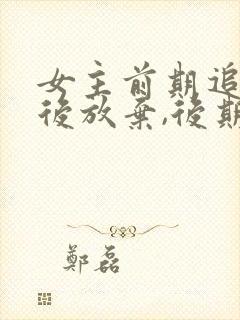 女主前期追
後放棄,後期
鄭磊